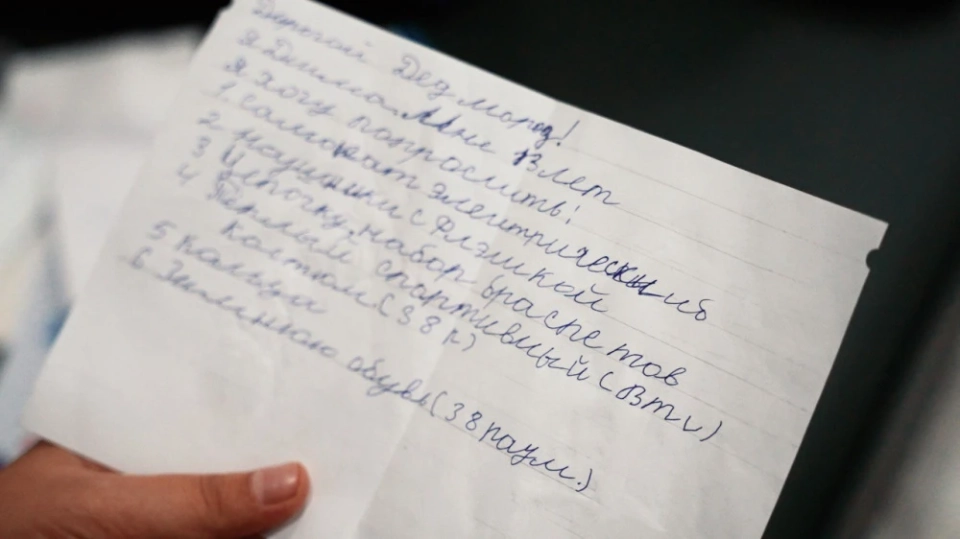 Дорогой Дед мороз!
Я Димма. Мне 13 лет
Я хочу попросить:
1 самокат электрический
2 наушники с флэшкой
3 Цепочку, набор браслетов
4 Теплый спортивный
костюм (38 р.)
5 кольца
6 Зимнюю обувь (38 разм.)